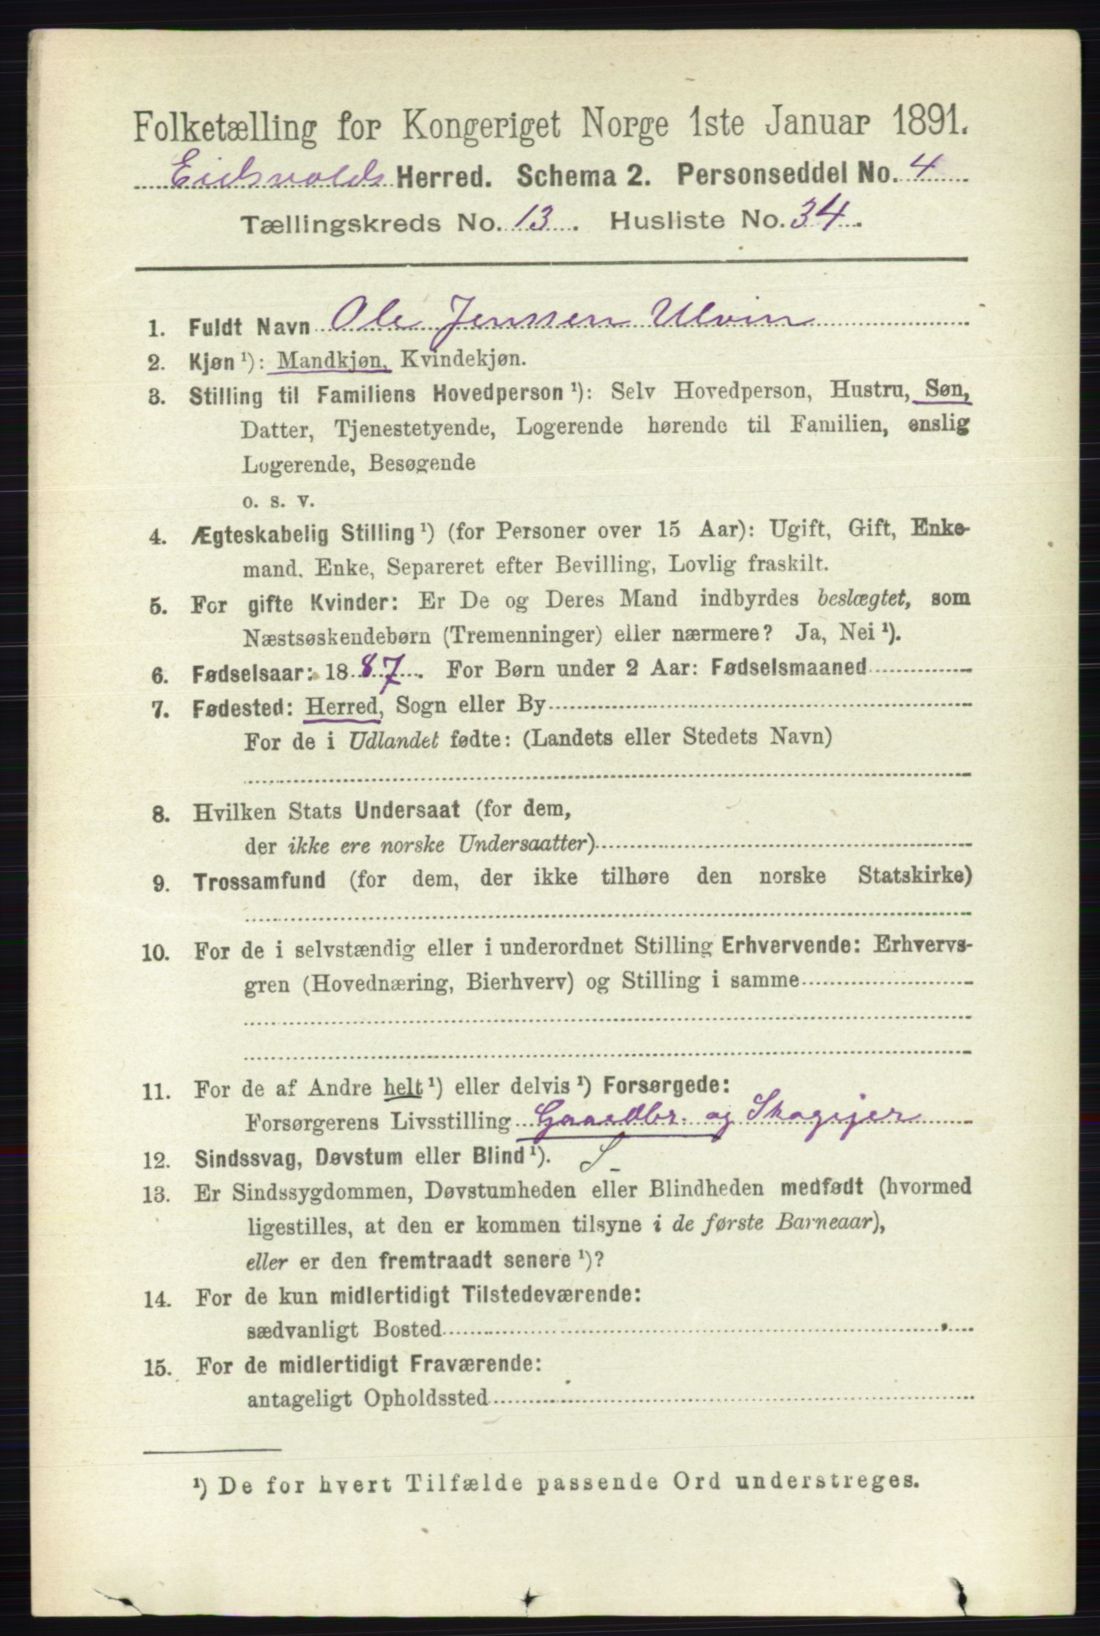 Folketælling for Kongeriget Norge 1ste Januar 1891.
Eidsvolds Herred. Schema 2. Personseddel No. 4
Tællingskreds No. 13. Husliste No. 34.
1. Fuldt Navn Ole Jenssen Ulvin
2. Kjøn ¹): Mandkjøn, Kvindekjøn.
3. Stilling til Familiens Hovedperson ¹): Selv Hovedperson, Hustru, Søn,
Datter, Tjenestetyende, Logerende hørende til Familien, enslig
Logerende, Besøgende
o. s. v.
4. Ægteskabelig Stilling ¹) (for Personer over 15 Aar): Ugift, Gift, Enke-
mand, Enke, Separeret efter Bevilling, Lovlig fraskilt.
5. For gifte Kvinder: Er De og Deres Mand indbyrdes beslægtet, som
Næstsøskendebørn (Tremenninger) eller nærmere? Ja, Nei ¹).
6. Fødselsaar: 1887. For Børn under 2 Aar: Fødselsmaaned
7. Fødested: Herred, Sogn eller By
For de i Udlandet fødte: (Landets eller Stedets Navn)
8. Hvilken Stats Undersaat (for dem,
der ikke ere norske Undersaatter)
9. Trossamfund (for dem, der ikke tilhøre den norske Statskirke)
10. For de i selvstændig eller i underordnet Stilling Erhvervende: Erhvervs-
gren (Hovednæring, Bierhverv) og Stilling i samme
11. For de af Andre helt ¹) eller delvis ¹) Forsørgede:
Forsørgerens Livsstilling Gaardbr. og Skogejer
12. Sindssvag, Døvstum eller Blind ¹).
13. Er Sindssygdommen, Døvstumheden eller Blindheden medfødt (hvormed
ligestilles, at den er kommen tilsyne i de første Barneaar),
eller er den fremtraadt senere ¹)?
14. For de kun midlertidigt Tilstedeværende:
sædvanligt Bosted
15. For de midlertidigt Fraværende:
antageligt Opholdssted
¹) De for hvert Tilfælde passende Ord understreges.